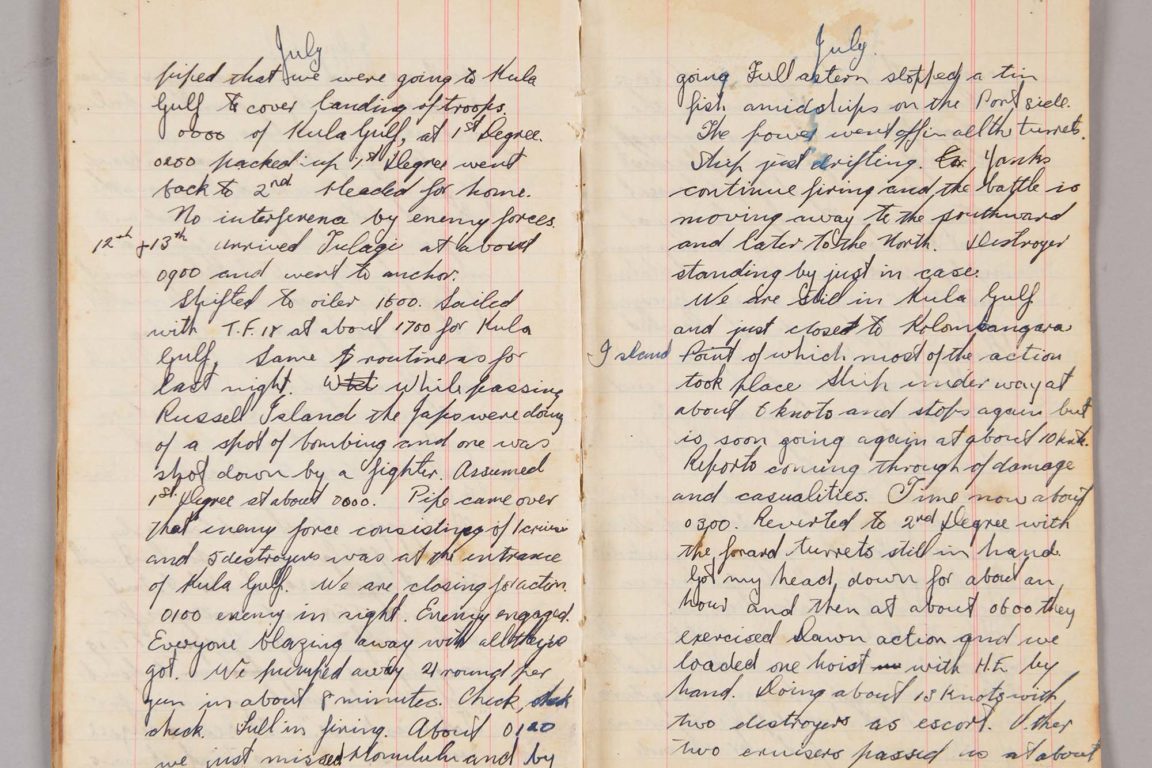 July
piped that we were going to Kula
Gulf to cover landing of troops.
0000 of Kula Gulf, at 1st Degree.
0200 packed up 1st Degree went
back to 2nd Headed for home.
No interference by enemy forces.
12th + 13th Arrived Tulagi at about
0900 and went to anchor.
Shifted to oiler 1600. Sailed
with T.F. 18 at about 1700 for Kula
Gulf. Same routine as for
last night. While passing
Russell Island the Japs were doing
of a spot of bombing and one was
shot down by a fighter. Assumed
1st Degree at about 0000. Pipe came over
that enemy force consisting of 1 cruiser
and 5 destroyers was at the entrance
of Kula Gulf. We are closing for action.
0100 enemy in sight. Enemy engaged.
Everyone blazing away with all they've
got. We pumped away 21 round per
gun in about 8 minutes. Check, check
check. Lull in firing. About 0120
we just missed Honolulu and by
July.
going Full astern stopped a tin
fish amidships on the Port side.
The power went off in all the turrets.
Ship just drifting. Yanks
continue firing and the battle is
moving away to the southward
and later to the North. Destroyer
standing by just in case.
We are still in Kula Gulf
and just closed to Kolombangara
Island Point of which most of the action
took place Ship under way at
about 6 knots and stops again but
is soon going again at about 10 knts.
Reports coming through of damage
and casualities. Time now about
0300. Reverted to 2nd Degree with
the forard turrets still in hand.
Got my head down for about an
hour and then at about 0600 they
exercised Dawn action and we
loaded one hoist with H.E. by
hand. Doing about 13 knots with
two destroyers as escort. Other
two cruisers passed us at about